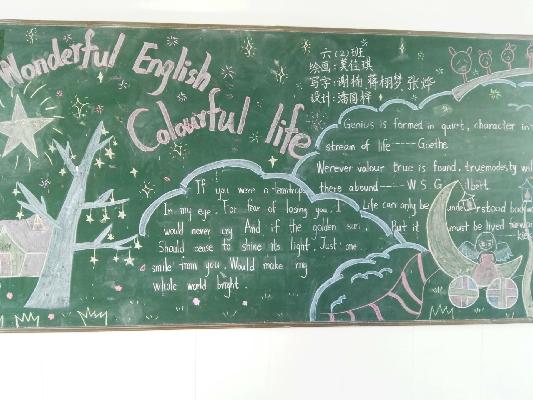 Wonderful English
Colourful life
六(2)班
绘画:黄佳琪
写字:谢楠 蒋栩梦 张烨
设计:潘国梓
Genius is formed in quirt, character in
stream of life ----Goethe
Werever valour true is found, truemodesty will
there abound---- W S G lbert
Life can only be understood
But it must be lived
If you were a teardrop
In my eye, For fear of losing you, I
would never cry And if the golden sun,
Should cease to shine its light, Just one
smile from you, Would make my
whole world bright